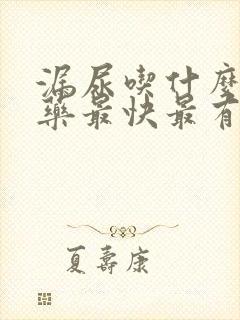 漏尿喫什麼
藥最快最有
夏壽康